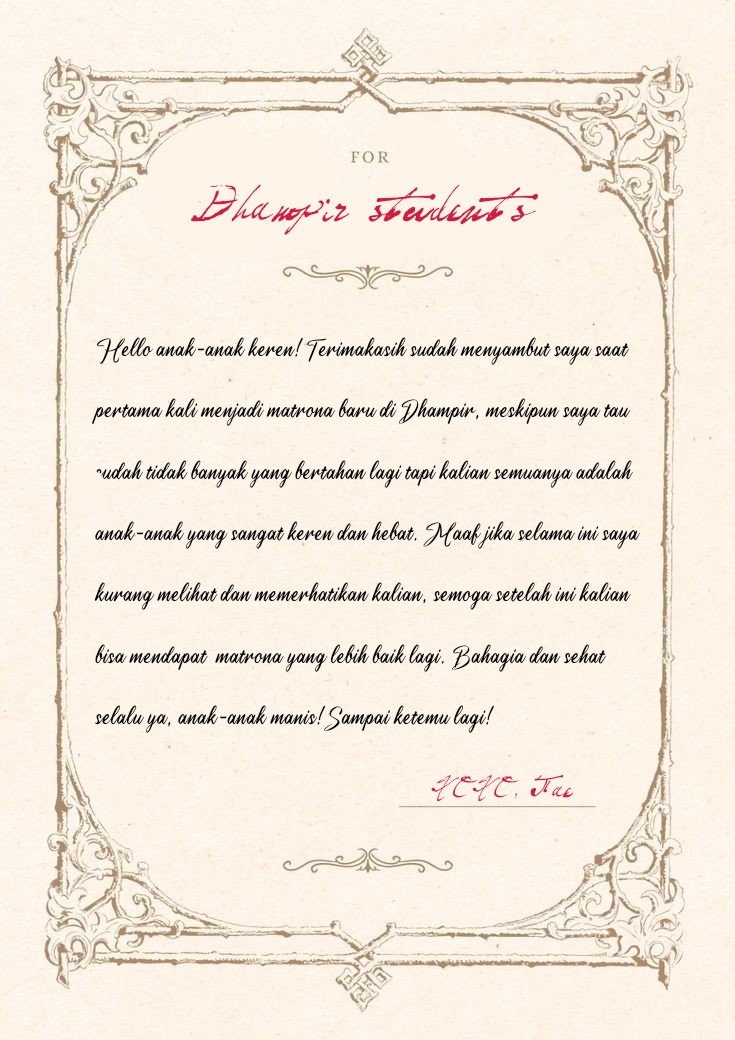 FOR
Dhampir students
Hello anak-anak keren! Terimakasih sudah menyambut saya saat
pertama kali menjadi matrona baru di Dhampir, meskipun saya tau
udah tidak banyak yang bertahan lagi tapi kalian semuanya adalah
anak-anak yang sangat keren dan hebat. Maaf jika selama ini saya
kurang melihat dan memerhatikan kalian, semoga setelah ini kalian
bisa mendapat matrona yang lebih baik lagi. Bahagia dan sehat
selalu ya, anak-anak manis! Sampai ketemu lagi!